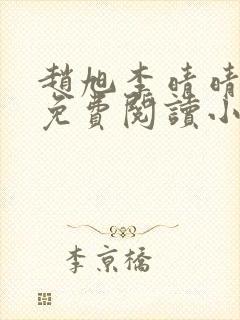 趙旭李晴晴
免費閱讀小
李京橋